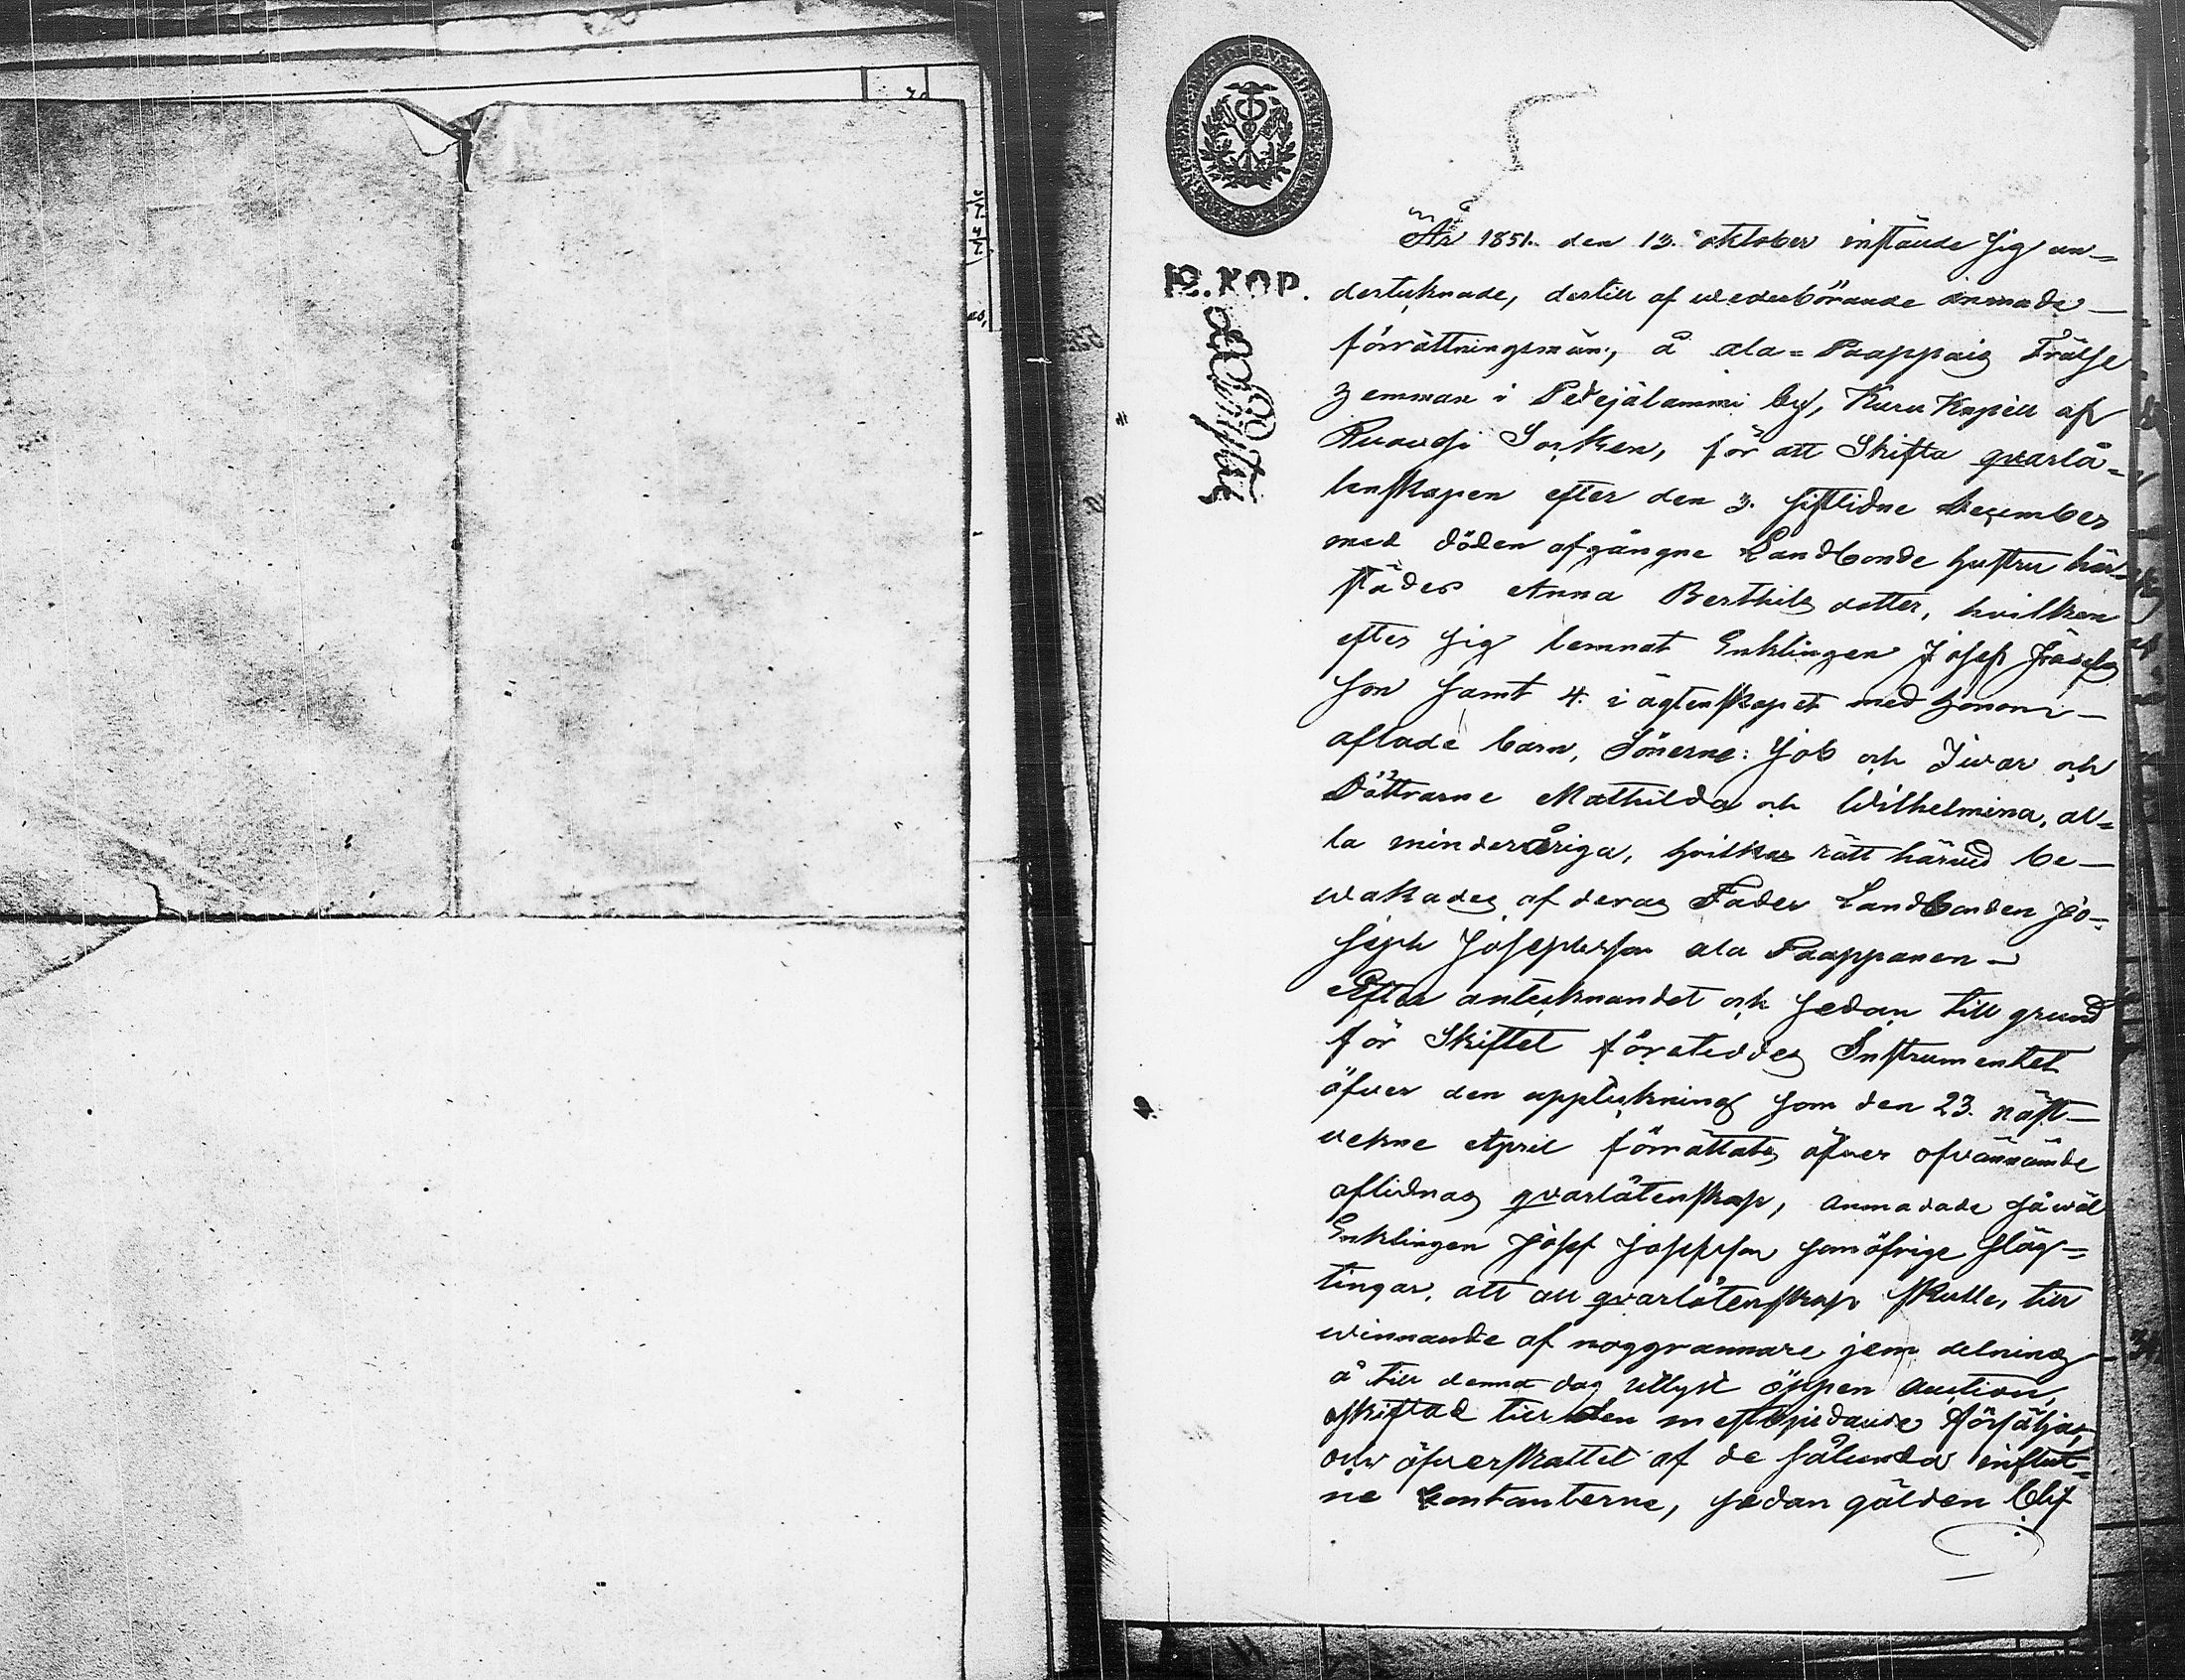 År 1851. den 13. oktober instäude sig un=
12. KOP.
dertecknade, dertill af wederbörande anmodade
förrättningsmän, å ala=Paappais Frälse
hemman i Pedejälammi by, Kuru Kapell af
Ruovesi Socken, för att Skifta qvarlå=
tenskapen efter den 3. sistlidne December
med döden afgångne Landbonde hustru här=
städes Anna Berthils dotter, hvilken
efter sig lemnat Enklingen Josef Josefs
son samt 4. i ägtenskapet med honom
aflade barn, Sönerne: Job och Iwar och
Döttrarne Mathilda och Wilhelmina, al=
la minderåriga, hvilkas rätt härvid be—
wakades af deras Fader Landbonden Jo=
seph Josephsson ala Paappanen—
Efter antecknandet och sedan till grund
för Skiftet företeddes Instrumentet
öfver den uppteckning som den 23. näst—
vekne April förrättats öfver ofvannämde
aflidnas qvarlåtenskap, anmodade såwäl
Enklingen Josef Josefsson som öfrige släg=
tingar, att all qvarlåtenskap skulle, till
winnande af noggrannare jem delning
å till denna dag utlyst öppen Auction,
oskiftad till den mestbjudande försäljas,
och öfverskottet af de sålunda influt=
ne kontanterne, sedan gälden blif